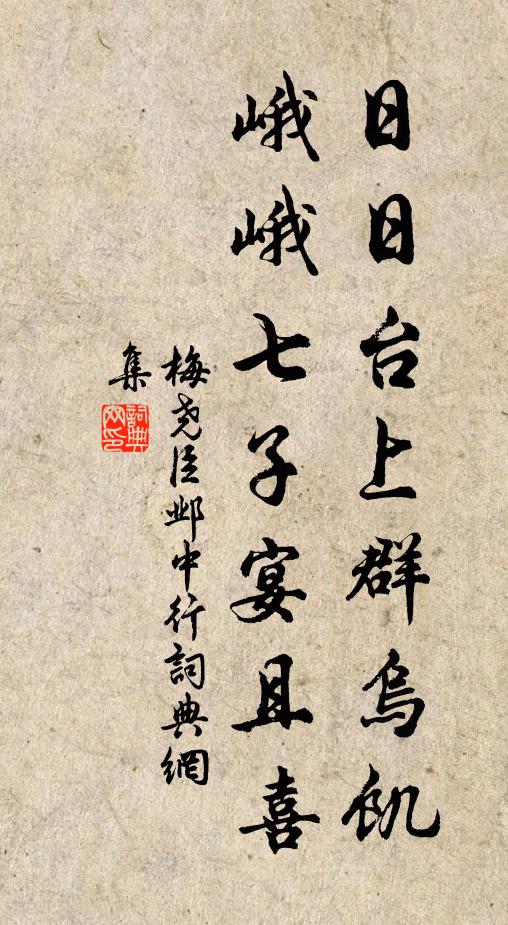 日日台上群烏飢
峨峨七子宴且喜
梅堯臣邺中行詞典網
集
詞典網印